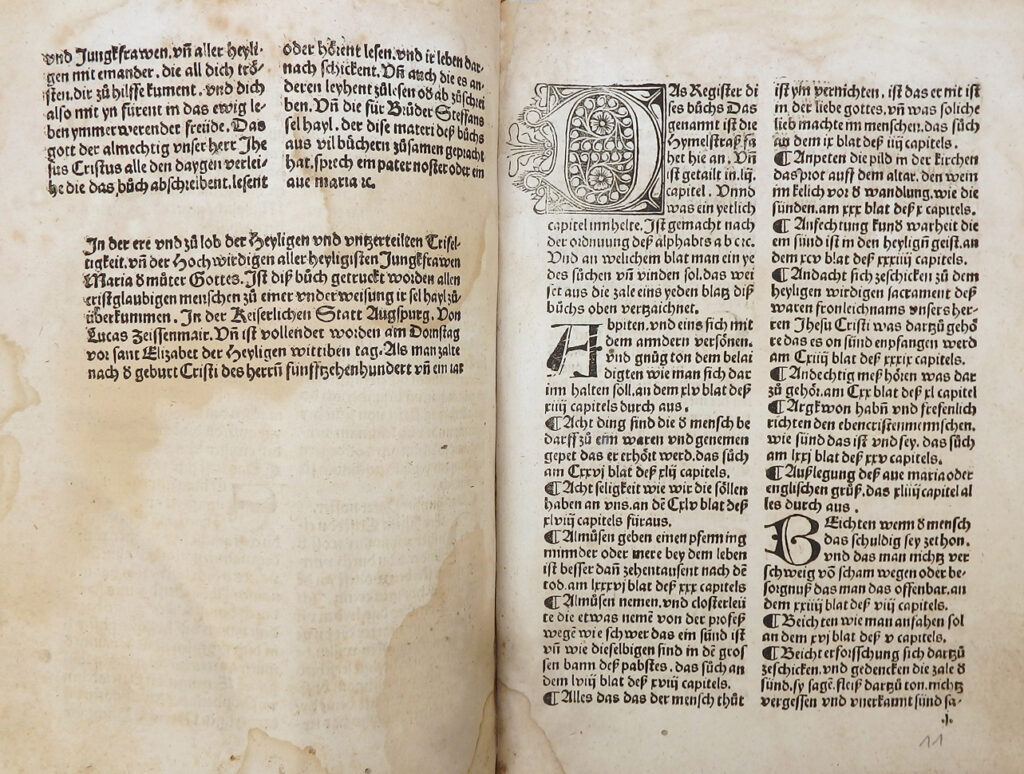 vnd Jungkfrawen. vñ aller heyli-
gen mit einander. die all dich trö-
sten. dir zů hilffe kument. vnd dich
also mit yn fürent in das ewig le-
ben ymmer werender freüde. Das
gott der almechtig vnser herr Jhe
sus Cristus alle den daygen verlei-
he die das bůch abschreibent. lesent
oder hörent lesen. vnd ir leben dar-
nach schickent. Vñ auch die es an-
deren leyhent zů lesen od ab zů schrei
ben. Vñ die für Brůder Steffans
sel hayl. der dise materi deß bůchs
aus vil bůchern zůsamen gepracht
hat. sprech ein pater noster oder ein
aue maria ꝛc.
In der ere vnd zů lob der Heyligen vnd vnzerteilten Trifel-
tigkeit. vñ der Hochwirdigen aller heyligisten Jungkfrawen
Maria ð můter Gottes. Ist diß bůch getruckt worden allen
cristglaubigen menschen zů einer vnderweisung ir sel hayl zů
überkummen. In der Keiserlichen Statt Augspurg. Von
Lucas Zeissenmair. Vñ ist vollendet worden am Domstag
vor sant Elizabet der Heyligen wittiben tag. Als man zalte
nach ð geburt Cristi des herrñ fünfftzehenhundert vñ ein iar
DAs Register di
ses bůchs Das
genannt ist die
Hymelstraß fa
het hie an. Vñ
ist getailt in. lij.
capitel. Vnnd
was ein yetlich
capitel innhelte. Jst gemacht nach
der ordnung deß alphabts a b c ꝛc.
Vnd an welichem blat man ein ye
des sůchen vñ vinden sol. das wei
set aus die zale eins yeden blatz diß
bůchs oben verzaichnet.
Abpiten. vnd eins sich mit
dem anndern versönen.
vnd gnůg ton dem belai
digten wie man sich dar
inn halten söll. an dem xlv blat deß
xiiij capitels durch aus.
¶ Acht ding sind die ð mensch be
darff zů eim waren vnd genemen
gepet das er erhört werd. das sůch
am Cxxvj blat deß xlij capitels.
¶ Acht seligkeit wie wir die söllen
haben an vns. an dē Cxlv blat deß
xlviij capitels füraus.
¶ Almůsen geben einen pfenning
minnder oder mere bey dem leben
ist besser dañ zehentausent nach dē
tod. am lxxxvj blat deß xxx capitels
¶ Almůsen nemen. vnd closterleü
te die etwas nemē von der profeß
wegē wie schwer das ein sünd ist
vñ wie dieselbigen sind in dē gros
sen bann deß pabstes. das sůch an
dem lviij blat deß xviij capitels.
¶ Alles das das der mensch thůt
ist yin vernichten. ist das er nit ist
in der liebe gottes. vñ was soliche
lieb machte im menschen. das sůch
an dem ix blat deß iiij capitels.
¶ Anpeten die pild in der kirchen
das prot auff dem altar. den wein
im kelich vor ð wandlung. wie die
sünden. am xxx blat deß x capitels.
¶ Anfechtung kund warheit die
ein sünd ist in den heyligñ geist. an
dem xcv blat deß xxxiiij capitels.
¶ Andacht sich zeschicken zů dem
heyligen wirdigen sacrament deß
waren fronleichnams vnsers her-
ren Jhesu Cristi was dartzů gehö
re das es on sünd enpfangen werd
am Cxiiij blat deß xxxix capitels.
¶ Andechtig meß hören was dar
zů gehör. am Cxx blat deß xl capitel
¶ Argkwon habñ vnd frefenlich
richten den ebencristenmennschen.
wie sünd das ist vnd sey. das sůch
am lxxj blat deß xxv capitels.
¶ Außlegung deß aue maria oder
englischen grůß. das xliiij capitel al
les durch aus.
BEichten wenn ð mensch
das schuldig sey zethon.
vnd das man nichtz ver
schweig vō scham wegen oder be-
sorgnuß das man das offenbar. an
dem xxiiij blat deß viij capitels.
¶ Beichten wie man anfahen sol
an dem xvj blat deß v capitels.
¶ Beicht erforschung sich dartzů
zeschicken. vnd gedencken die zale ð
sünd. sy sagē. fleiß dartzů ton. nichtz
vergessen vnd vnerkannt sünd sa-
.j.
11